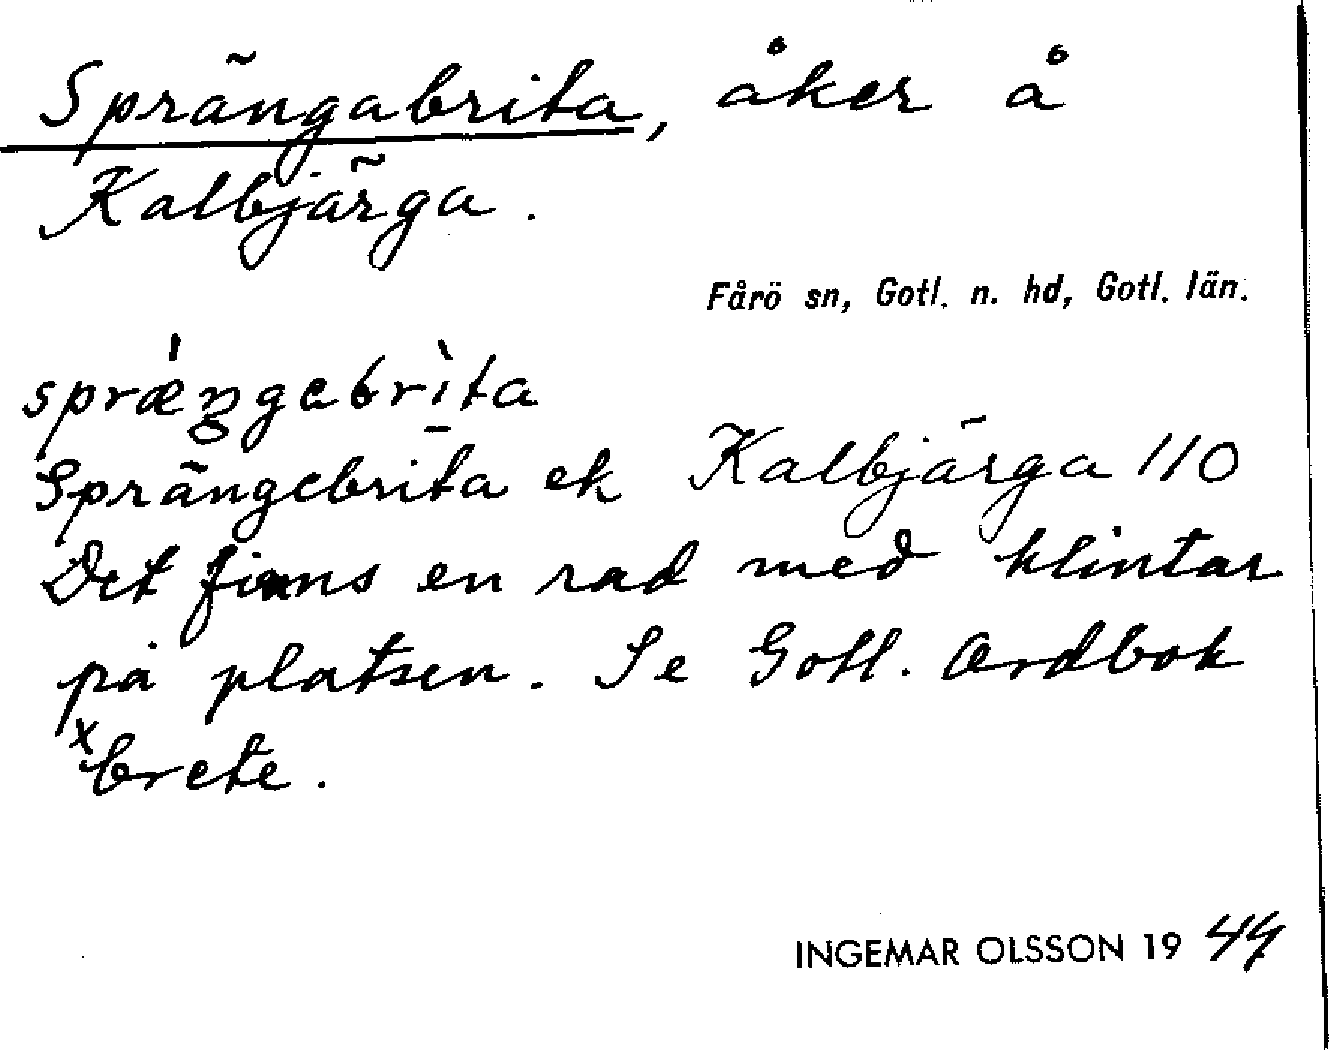 Sprängabrita, åker å
Kalbjärga.
Fårö sn, Gotl. n. hd, Gotl. län.
sprængabrita
Sprängebrita ek Kalbjärga 110
Det finns en rad med klintar
på platsen. Se Gotl. Ordbok
×brete.
INGEMAR OLSSON 1949